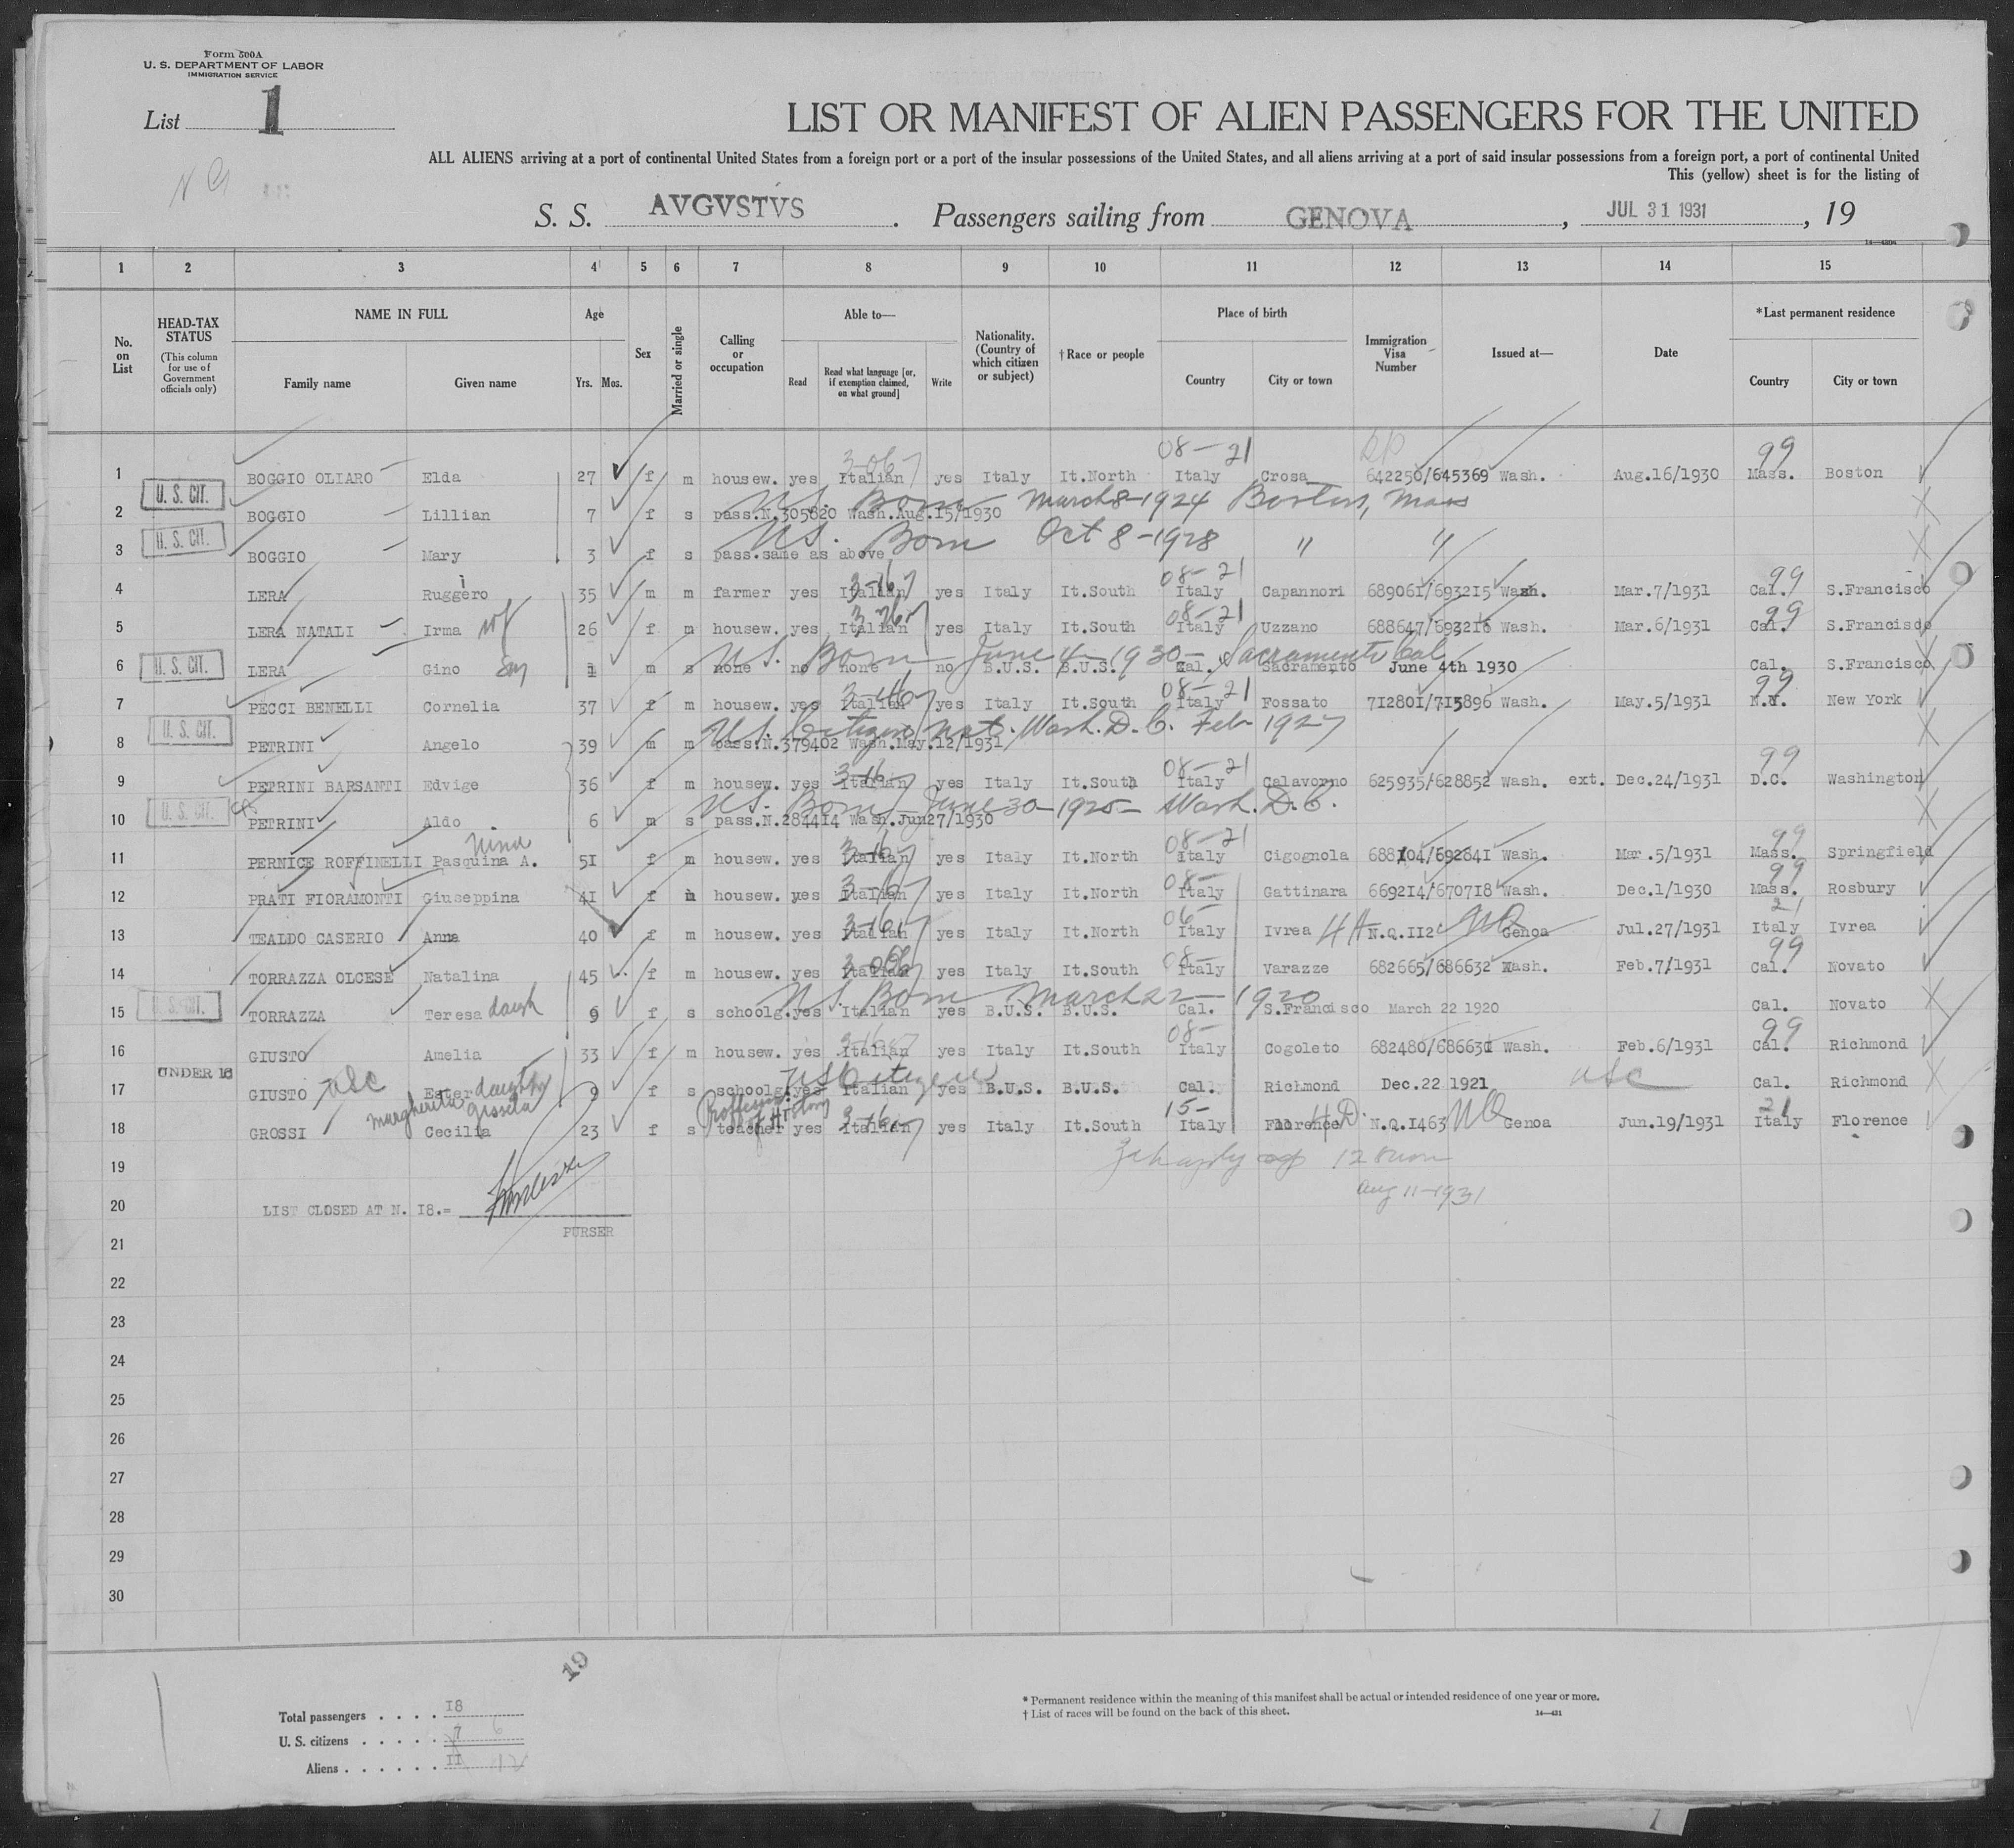 Form 500A
U. S. DEPARTMENT OF LABOR
IMMIGRATION SERVICE
List 1
LIST OR MANIFEST OF ALIEN PASSENGERS FOR THE UNITED
ALL ALIENS arriving at a port of continental United States from a foreign port or a port of the insular possessions of the United States, and all aliens arriving at a port of said insular possessions from a foreign port, a port of continental United
This (yellow) sheet is for the listing of
S. S. AVGVSTVS. Passengers sailing from GENOVA, JUL 31 1931, 19
1 2 3 4 5 6 7 8 9 10 11 12 13 14 15
No. on List
HEAD-TAX STATUS (This column for use of Government officials only)
NAME IN FULL
Family name Given name
Age
Yrs. Mos.
Sex
Married or single
Calling or occupation
Able to—
Read Read what language [or, if exemption claimed, on what ground] Write
Nationality. (Country of which citizen or subject)
†Race or people
Place of birth
Country City or town
Immigration Visa Number
Issued at—
Date
*Last permanent residence
Country City or town
08-21 99
1 BOGGIO OLIARO Elda 27 f m housew. yes Italian yes Italy It.North Italy Crosa 642250/645369 Wash. Aug.16/1930 Mass. Boston
U. S. CIT. U.S. Born March 8-1924 Boston, Mass
2 BOGGIO Lillian 7 f s pass.N.305820 Wash.Aug.15/1930
U. S. CIT. U.S. Born Oct 8-1928 " "
3 BOGGIO Mary 3 f s pass.same as above
3-16 08-21 99
4 LERA Ruggero 35 m m farmer yes Italian yes Italy It.South Italy Capannori 689061/693215 Wash. Mar.7/1931 Cal. S.Francisco
08-21 99
5 LERA NATALI Irma wf 26 f m housew. yes Italian yes Italy It.South Italy Uzzano 688647/693216 Wash. Mar.6/1931 Cal. S.Francisco
U.S. Born June 4-1930- Sacramento Cal
6 U. S. CIT. LERA Gino 1 m s none no none no B.U.S. B.U.S. Cal. Sacramento June 4th 1930 Cal. S.Francisco
3-16 08-21 99
7 PECCI BENELLI Cornelia 37 f m housew. yes Italian yes Italy It.South Italy Fossato 712801/715896 Wash. May.5/1931 N.Y. New York
U. S. CIT. U.S. Citizen Nat. Wash. D.C. Feb 1927
8 PETRINI Angelo 39 m m pass.N.379402 Wash.May.12/1931
3-16 08-21 99
9 PETRINI BARSANTI Edvige 36 f m housew. yes Italian yes Italy It.South Italy Calavorno 625935/628852 Wash. ext. Dec.24/1931 D.C. Washington
U. S. CIT. U.S. Born June 30-1925- Wash. D.C.
10 PETRINI Aldo 6 m s pass.N.284414 Wash.Jun27/1930
Nina 3-16 08-21 99
11 PERNICE ROFFINELLI Pasquina A. 51 f m housew. yes Italian yes Italy It.North Italy Cigognola 688104/692841 Wash. Mar.5/1931 Mass. Springfield
3-16 08- 99
12 PRATI FIORAMONTI Giuseppina 41 f m housew. yes Italian yes Italy It.North Italy Gattinara 669214/670718 Wash. Dec.1/1930 Mass. Rosbury
3-16 06- 21
13 TEALDO CASERIO Anna 40 f m housew. yes Italian yes Italy It.North Italy Ivrea N.Q.112 NQ Genoa Jul.27/1931 Italy Ivrea
08- 99
14 TORRAZZA OLCESE Natalina 45 f m housew. yes Italian yes Italy It.South Italy Varazze 682665/686632 Wash. Feb.7/1931 Cal. Novato
U. S. CIT. U.S. Born March 22-1920
15 TORRAZZA Teresa daugh 9 f s schoolg. yes Italian yes B.U.S. B.U.S. Cal. S.Francisco March 22 1920 Cal. Novato
08- 99
16 GIUSTO Amelia 33 f m housew. yes Italian yes Italy It.South Italy Cogoleto 682480/686631 Wash. Feb.6/1931 Cal. Richmond
UNDER 16 US Citizen
17 GIUSTO USC Ester daught 9 f s schoolg. yes Italian yes B.U.S. B.U.S. Cal. Richmond Dec.22 1921 USC Cal. Richmond
Margherita Professor of History 3-16 15- 21
18 GROSSI Cecilia 23 f s teacher yes Italian yes Italy It.South Italy Florence N.Q.1463 NQ Genoa Jun.19/1931 Italy Florence
19
Aug 11-1931
20 LIST CLOSED AT N. 18.=
PURSER
21
22
23
24
25
26
27
28
29
30
19
Total passengers . . . . 18
U. S. citizens . . . . . 7 6
Aliens . . . . . . 11 12
* Permanent residence within the meaning of this manifest shall be actual or intended residence of one year or more.
† List of races will be found on the back of this sheet.
14—421